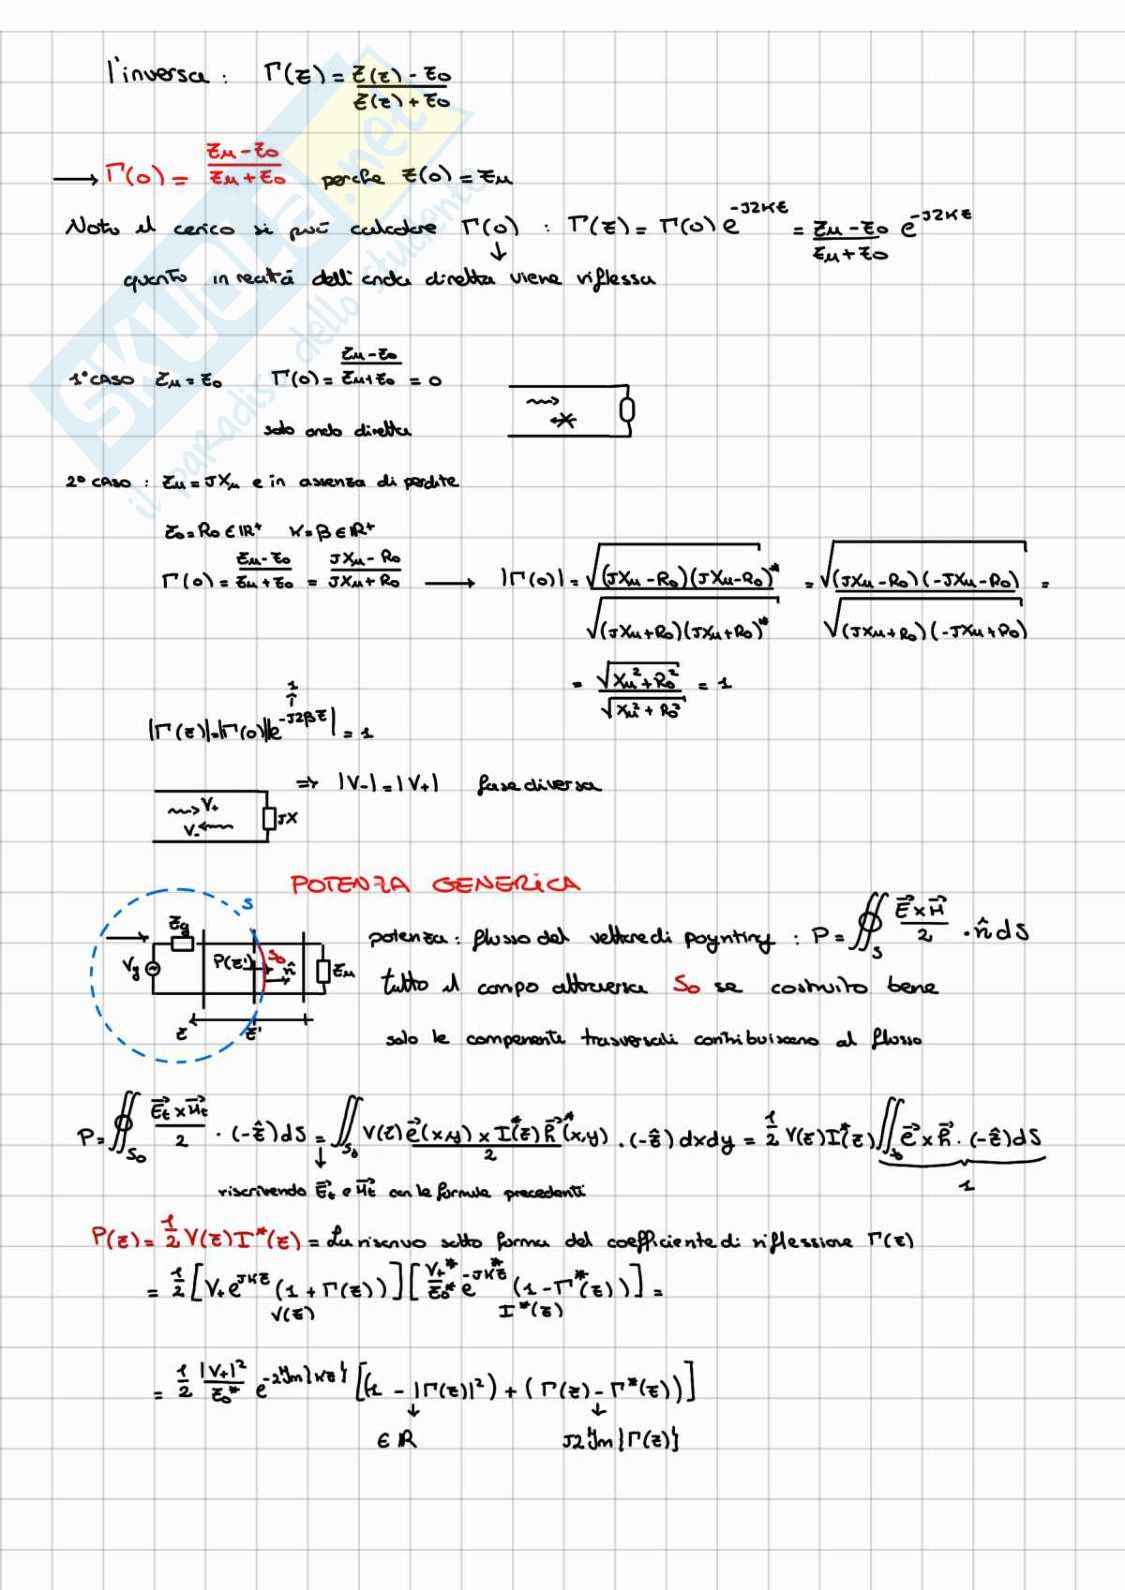 l'inversa : Γ(z) = (z(z) - z0)/(z(z) + z0)
→ Γ(0) = (zu - z0)/(zu + z0) perche z(0) = zu
Noto il carico si può calcolare Γ(0) : Γ(z) = Γ(0) e^(-J2Kz) = (zu - z0)/(zu + z0) e^(-J2Kz)
↓
quanto in realtá dell'onda diretta viene riflessa
1° CASO zu = z0 Γ(0) = (zu - z0)/(zu + z0) = 0
solo onda diretta
2° CASO : zu = JXu e in assenza di perdite
z0 = R0 ∈ IR⁺ K = β ∈ IR⁺
Γ(0) = (zu - z0)/(zu + z0) = (JXu - R0)/(JXu + R0) → |Γ(0)| = √((JXu - R0)(JXu - R0)*) / √((JXu + R0)(JXu + R0)*) = √((JXu - R0)(-JXu - R0)) / √((JXu + R0)(-JXu + R0)) =
= √(Xu² + R0²) / √(Xu² + R0²) = 1
1
↑
|Γ(z)| = |Γ(0)||e^(-J2βz)| = 1
⇒ |V-| = |V+| fase diversa
V+ JX
V-
POTENZA GENERICA
S
zg
Vg P(z') S0 n̂ zu
z z'
potenza : flusso del vettore di poynting : P = ∯_S (E⃗ x H⃗)/2 · n̂ dS
tutto il campo attraversa S0 se costruito bene
solo le componente trasversali contribuiscono al flusso
P = ∯_S0 (E⃗t x H⃗t)/2 · (-ẑ) dS = ∬_S0 (V(z) e⃗(x,y) x I*(z) h⃗*(x,y))/2 · (-ẑ) dxdy = 1/2 V(z) I*(z) ∬_S0 e⃗ x h⃗ · (-ẑ) dS
↓ 1
riscrivendo E⃗t e H⃗t con le formule precedenti
P(z) = 1/2 V(z) I*(z) = La riscrivo sotto forma del coefficiente di riflessione Γ(z)
= 1/2 [V+ e^(JKz) (1 + Γ(z))] [V+*/z0* e^(-JK*z) (1 - Γ*(z))] =
V(z) I*(z)
= 1/2 |V+|²/z0* e^(-2Im{Kz}) [(1 - |Γ(z)|²) + (Γ(z) - Γ*(z))]
↓ ↓
∈ IR J2 Im{Γ(z)}
SKUOLA.net
il paradiso dello studente